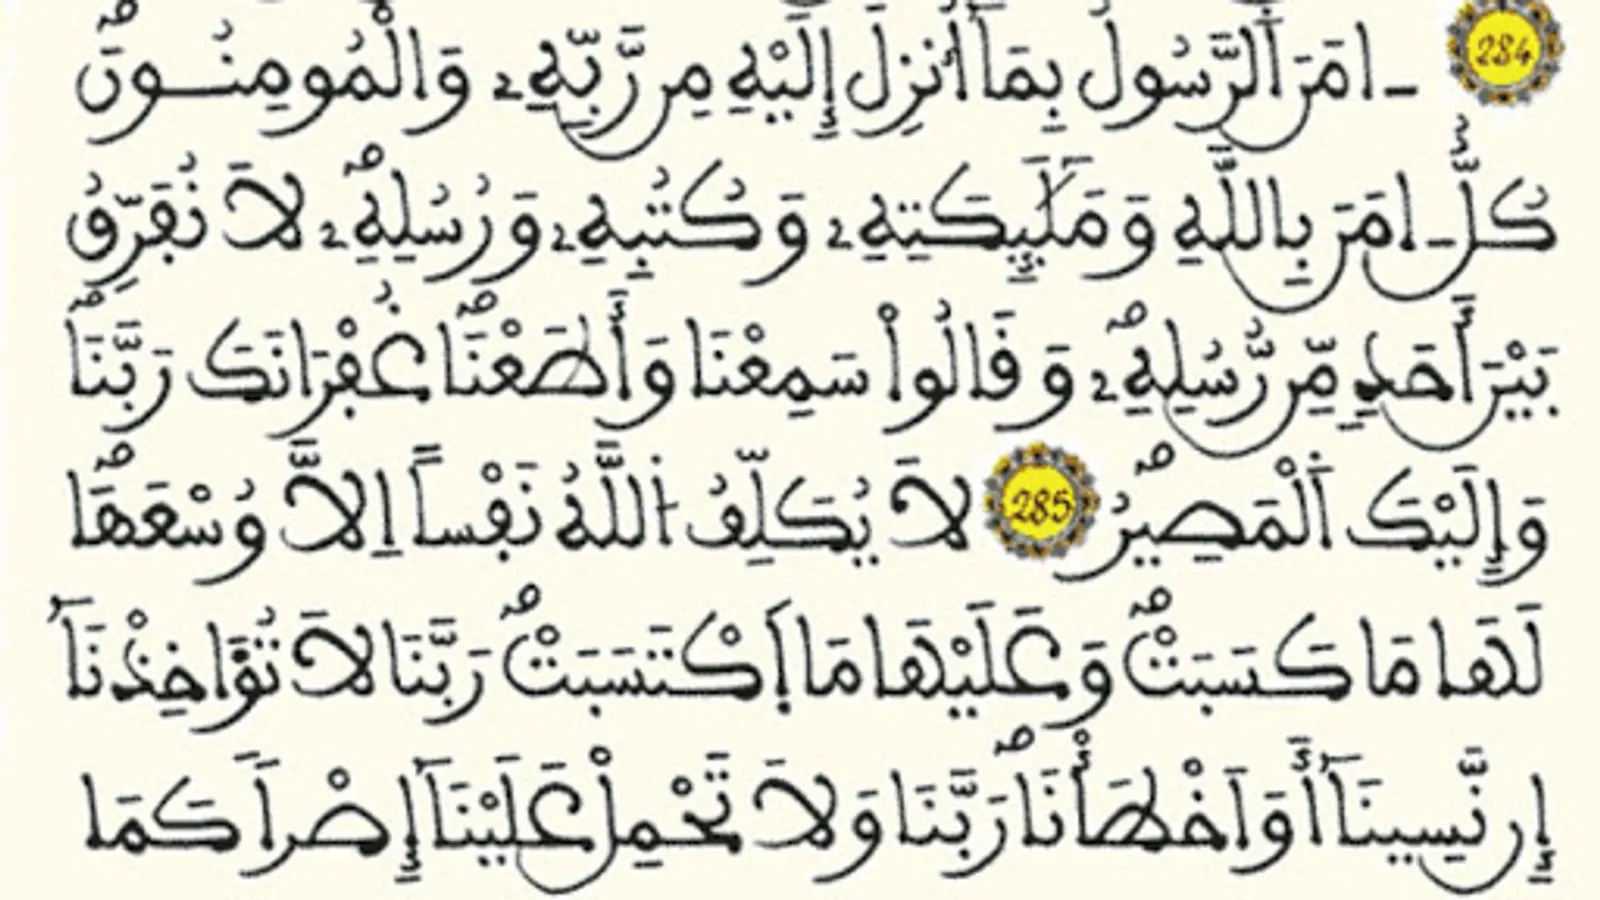 284 ءَامَنَ اَ۬لرَّسُولُ بِمَآ أُنزِلَ إِلَيْهِ مِن رَّبِّهِۦ وَالْمُومِنُونَ
كُلٌّ ـ امَنَ بِاللَّهِ وَمَلَٰٓئِكَتِهِۦ وَكُتُبِهِۦ وَرُسُلِهِۦ لَا نُفَرِّقُ
بَيْنَ أَحَدٍ مِّن رُّسُلِهِۦ وَقَالُواْ سَمِعْنَا وَأَطَعْنَا غُفْرَانَكَ رَبَّنَا
وَإِلَيْكَ اَ۬لْمَصِيرُ 285 لَا يُكَلِّفُ اُ۬للَّهُ نَفْساً اِلَّا وُسْعَهَا
لَهَا مَا كَسَبَتْ وَعَلَيْهَا مَا اَ۪كْتَسَبَتْ رَبَّنَا لَا تُؤَاخِذْنَآ
إِن نَّسِينَآ أَوَ اَخْطَأْنَا رَبَّنَا وَلَا تَحْمِلْ عَلَيْنَآ إِصْراً كَمَا